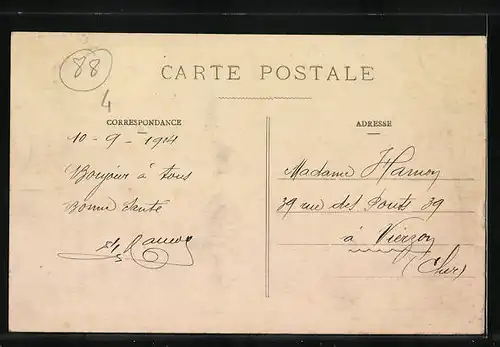 88
4
CARTE POSTALE
CORRESPONDANCE
10 - 9 - 1914
Bonjour à tous
Bonne Santé
ADRESSE
Madame Hamon
39 rue des Ponts 39
à Vierzon
(Cher)